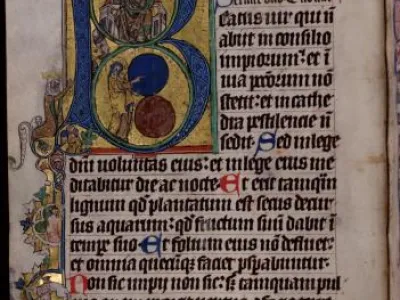 B
eatus uir qui ñ
abiit in consilio
impiorum: et ĩ
uia pcc̃orum nõ
stetit: et in cathe
dra pestilencie ñ
sedit. Sed in lege
dñi uoluntas eius: et in lege eius me
ditabitur die ac nocte. Et erit tamq̃m
lignum qd̃ plantatum est secus decur
sus aquarum: qd̃ fructum suum dabit ĩ
tempe suo. Et folium eius non defluet:
et omnia quecũq̃ faciet p̃spabuntur.
Non sic impii non sic: s̃ tamquam pul